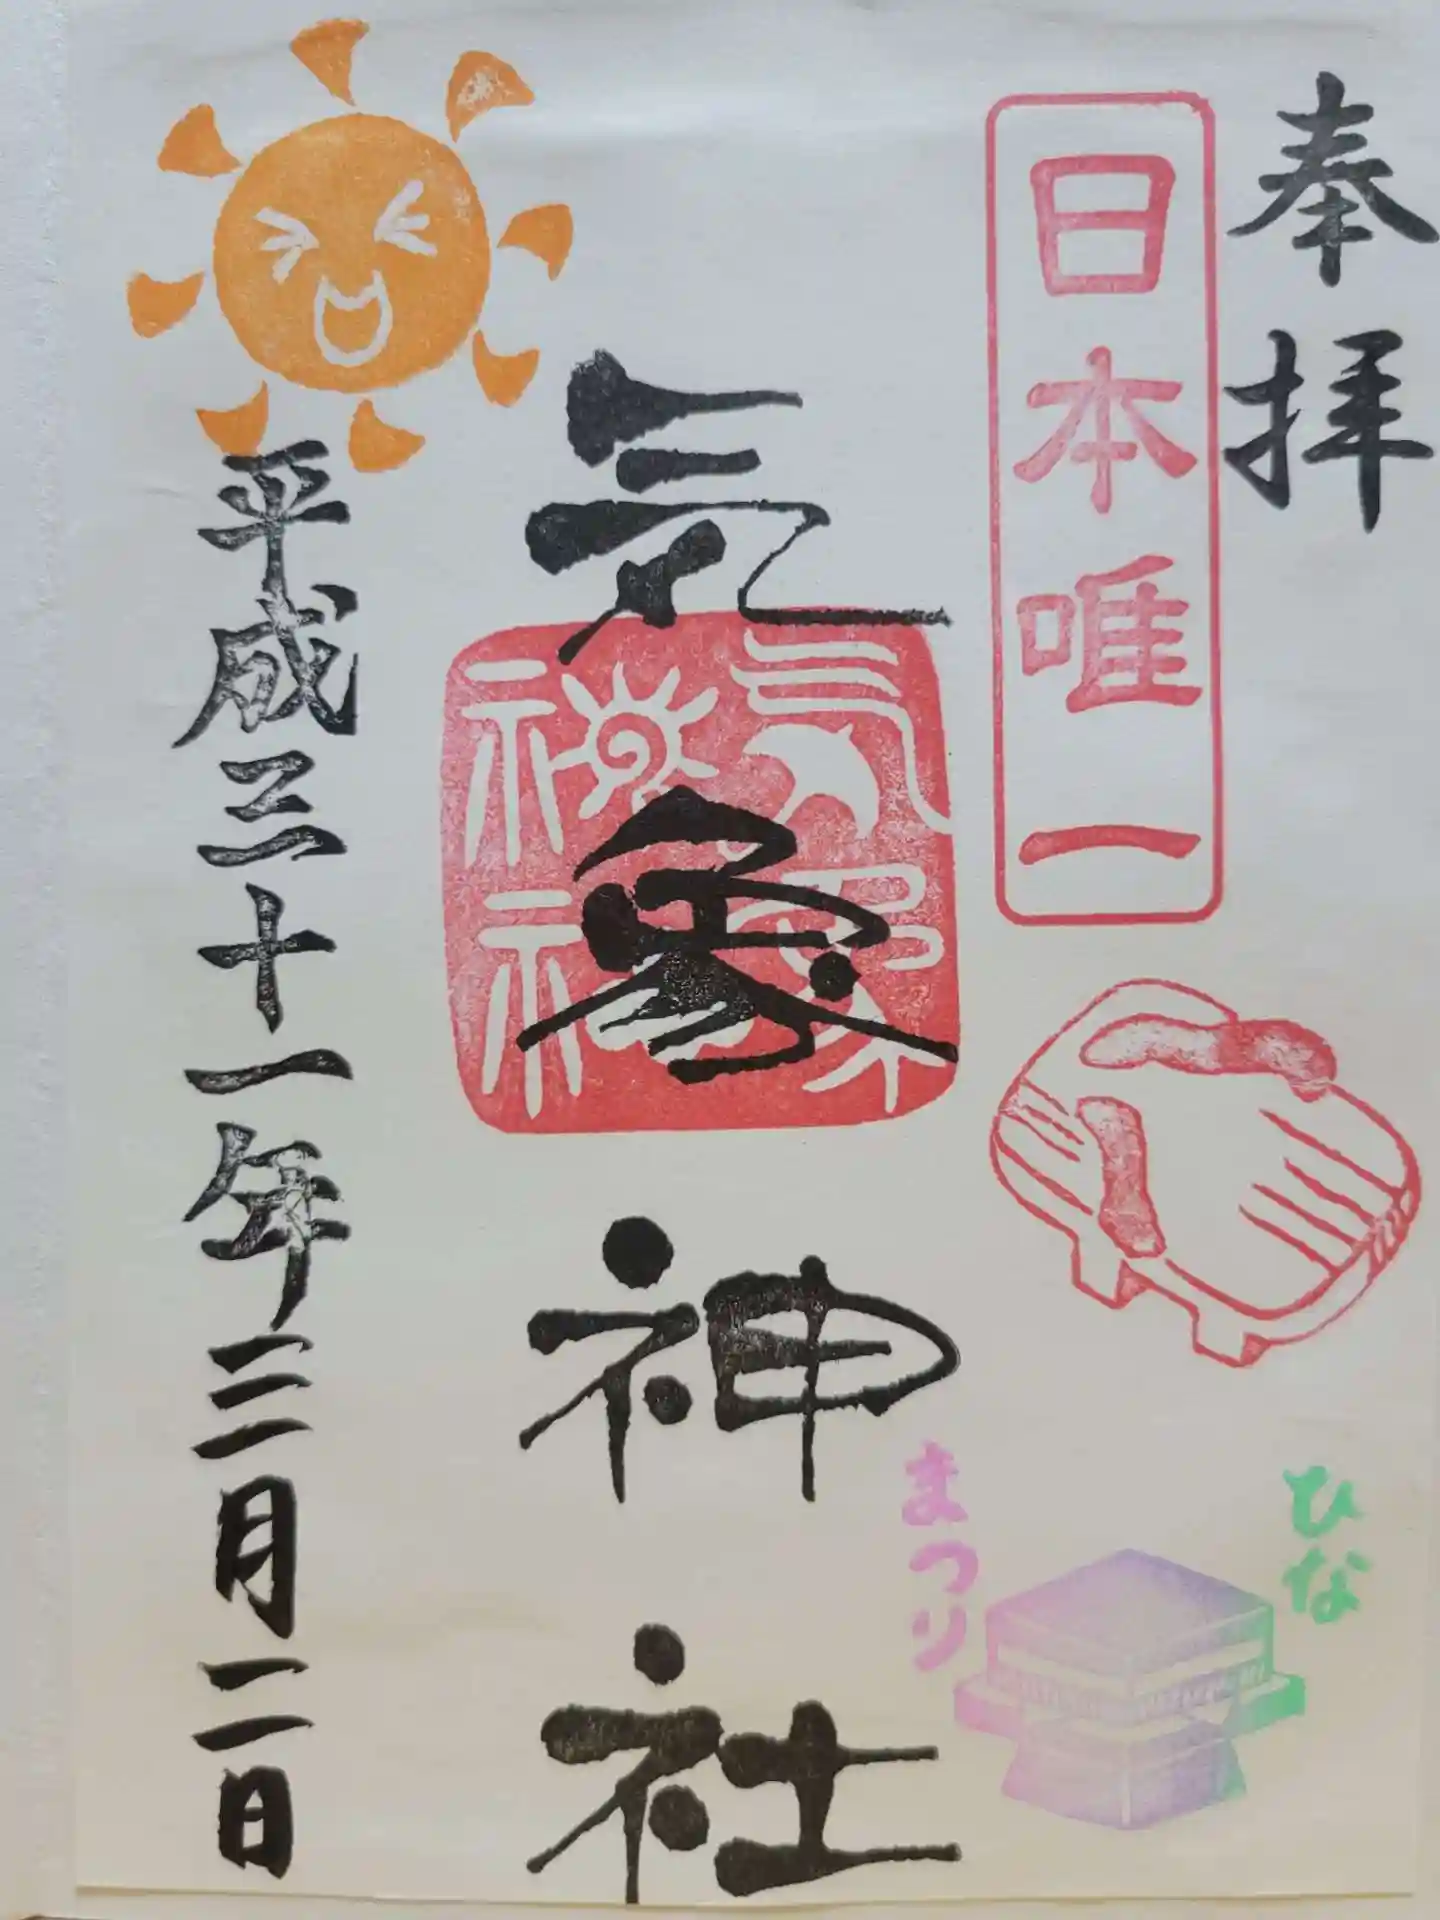 奉拝
日本唯一
ひな
まつり
気象神社
気象神社
平成三十一年三月二日